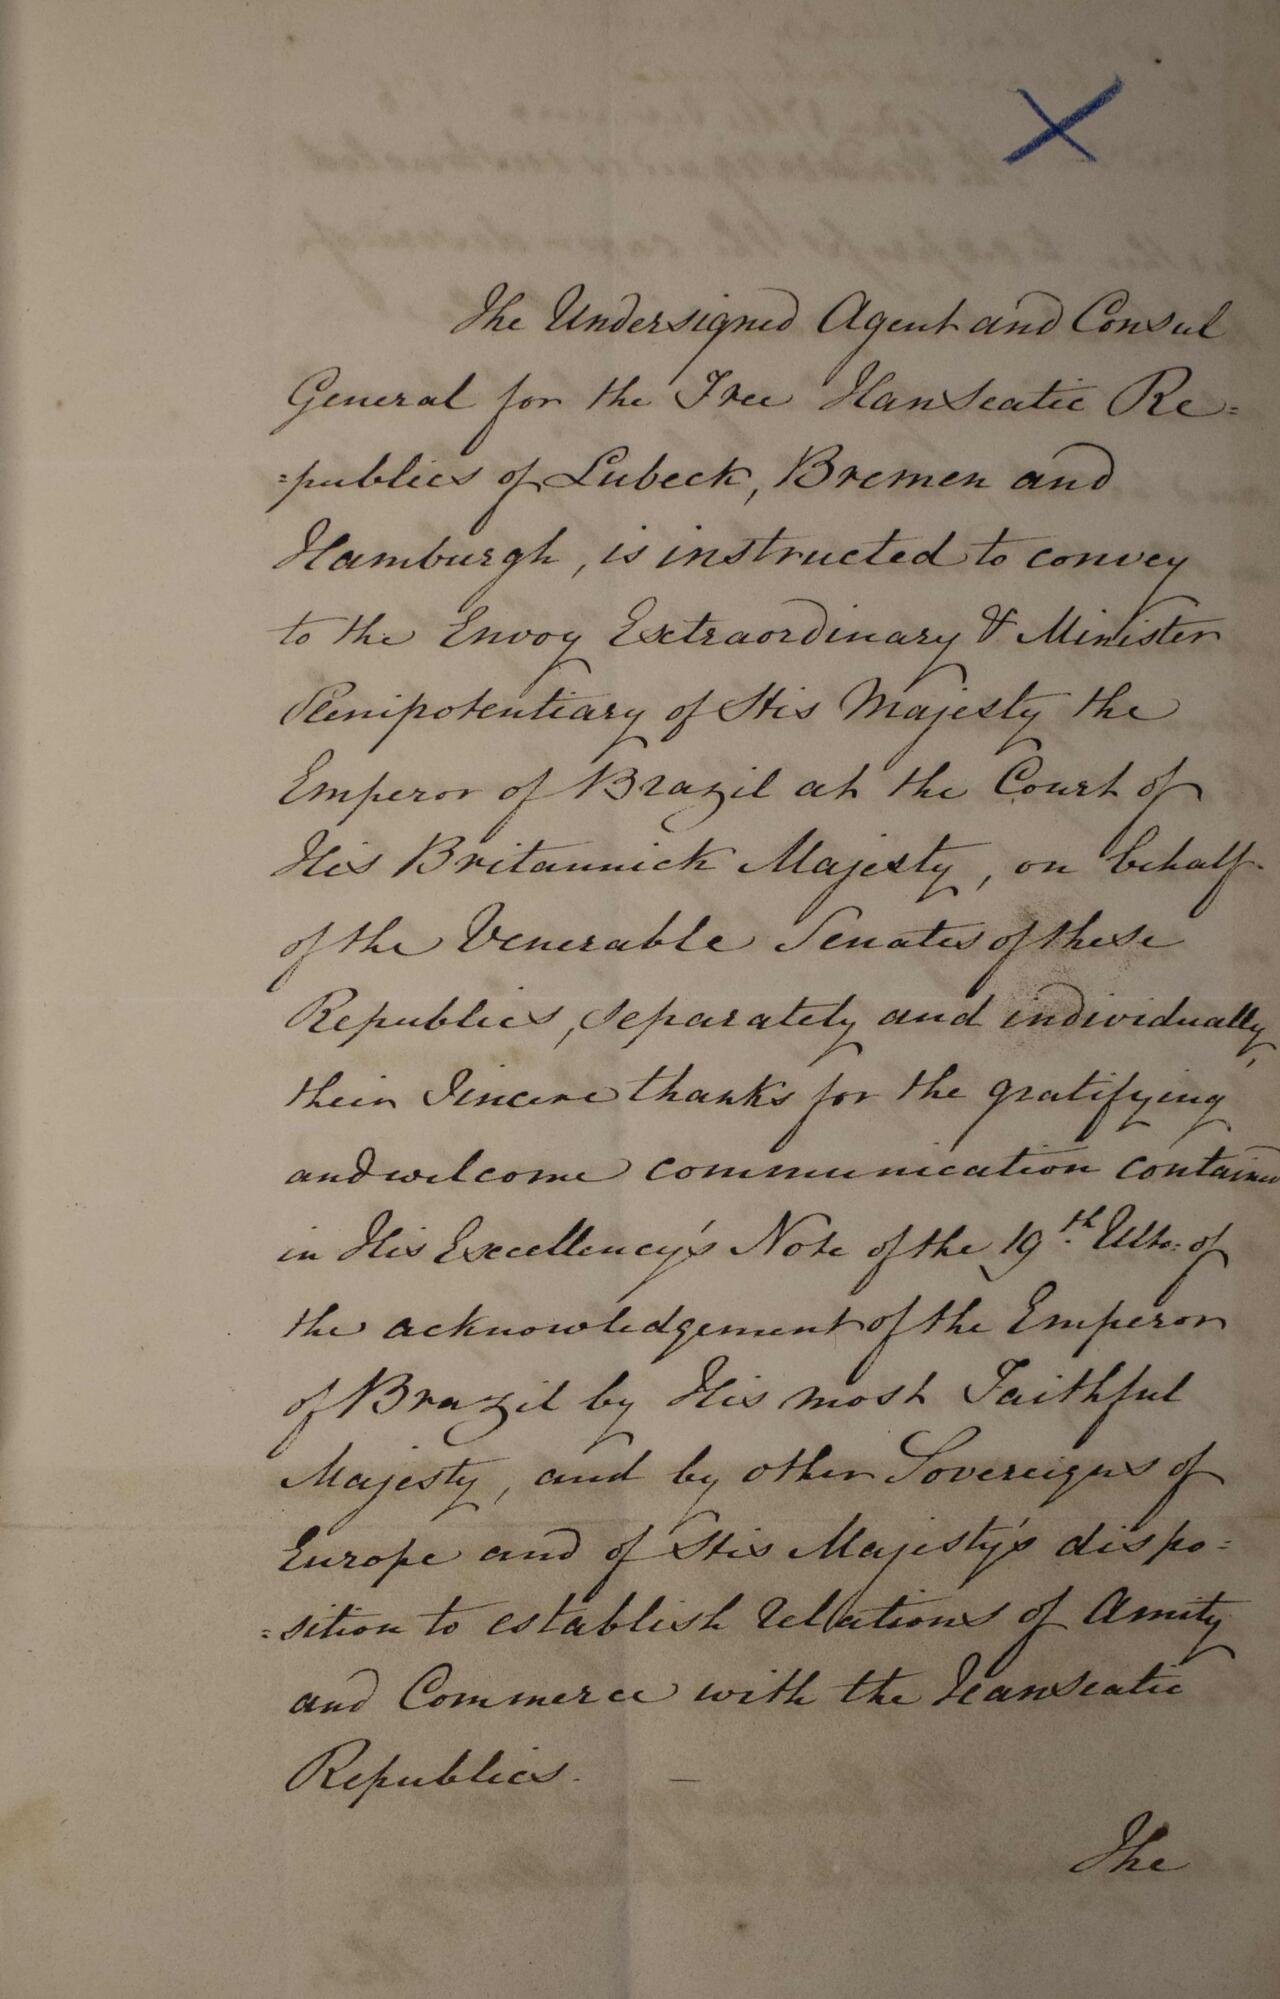 The Undersigned Agent and Consul
General for the Free Hanseatic Re=
=publics of Lubeck, Bremen and
Hamburgh, is instructed to convey
to the Envoy Extraordinary & Minister
Plenipotentiary of His Majesty the
Emperor of Brazil at the Court of
His Britannick Majesty, on behalf
of the Venerable Senates of these
Republics, separately and individually,
their Sincere thanks for the gratifying
and welcome communication contained
in His Excellency's Note of the 19th. Ulto: of
the acknowledgement of the Emperor
of Brazil by His most Faithful
Majesty, and by other Sovereigns of
Europe and of His Majesty's dispo=
=sition to establish relations of Amity
and Commerce with the Hanseatic
Republics. —
The